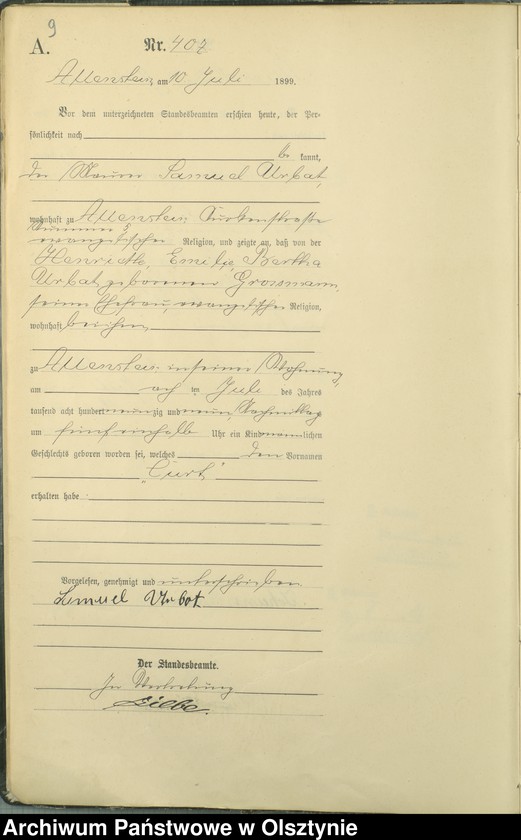 9
A.
Nr. 407
Allenstein am 10 Juli 1899.
Vor dem unterzeichneten Standesbeamten erschien heute, der Per-
sönlichkeit nach
be kannt,
der Maurer Samuel Urbat,
wohnhaft zu Allenstein
Nummer 5
evangelischer Religion, und zeigte an, daß von der
Henriette Emilie Bertha
Urbat geborenen Grossmann,
seiner Ehefrau, evangelischer Religion,
wohnhaft bei ihm,
zu Allenstein in seiner Wohnung,
am acht ten Juli des Jahres
tausend acht hundert neunzig und neun, Nachmittag
um fünfeinhalb Uhr ein Kind männlichen
Geschlechts geboren worden sei, welches den Vornamen
„Curt“
erhalten habe
Vorgelesen, genehmigt und unterschrieben
Samuel Urbat
Der Standesbeamte.
In Vertretung
Archiwum Państwowe w Olsztynie